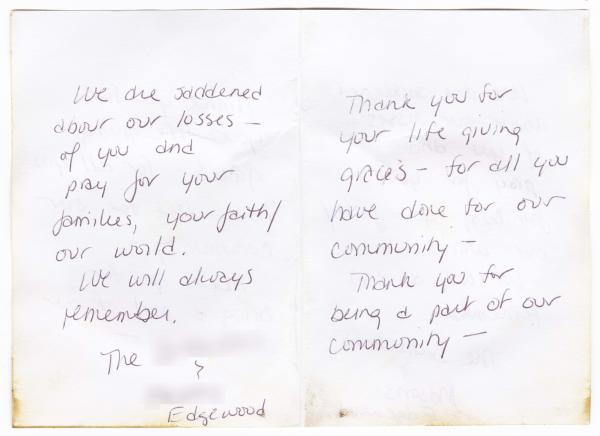 We are saddened
abour our losses –
of you and
pray for your
families, your faith/
our world.
We will always
remember.
The
Edgewood
Thank you for
your life giving
graces – for all you
have done for our
community –
Thank you for
being a part of our
community –